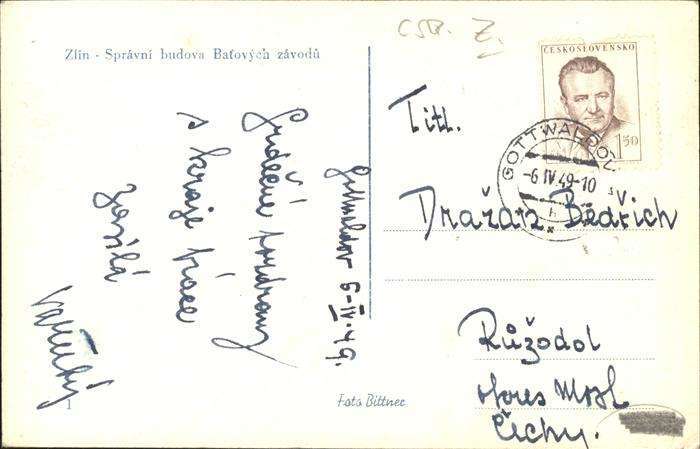 ČSR. Z.
Zlín - Správní budova Baťových závodů
ČESKOSLOVENSKO
1.50
GOTTWALDOV
-6.IV.49-10
h
Gottwaldov 6-IV-49.
Srdečné pozdravy
s kraje práce
zasílá
Titl.
Dražan Bedřich
Růžodol
okres Most
Čechy.
Foto Bittner
1